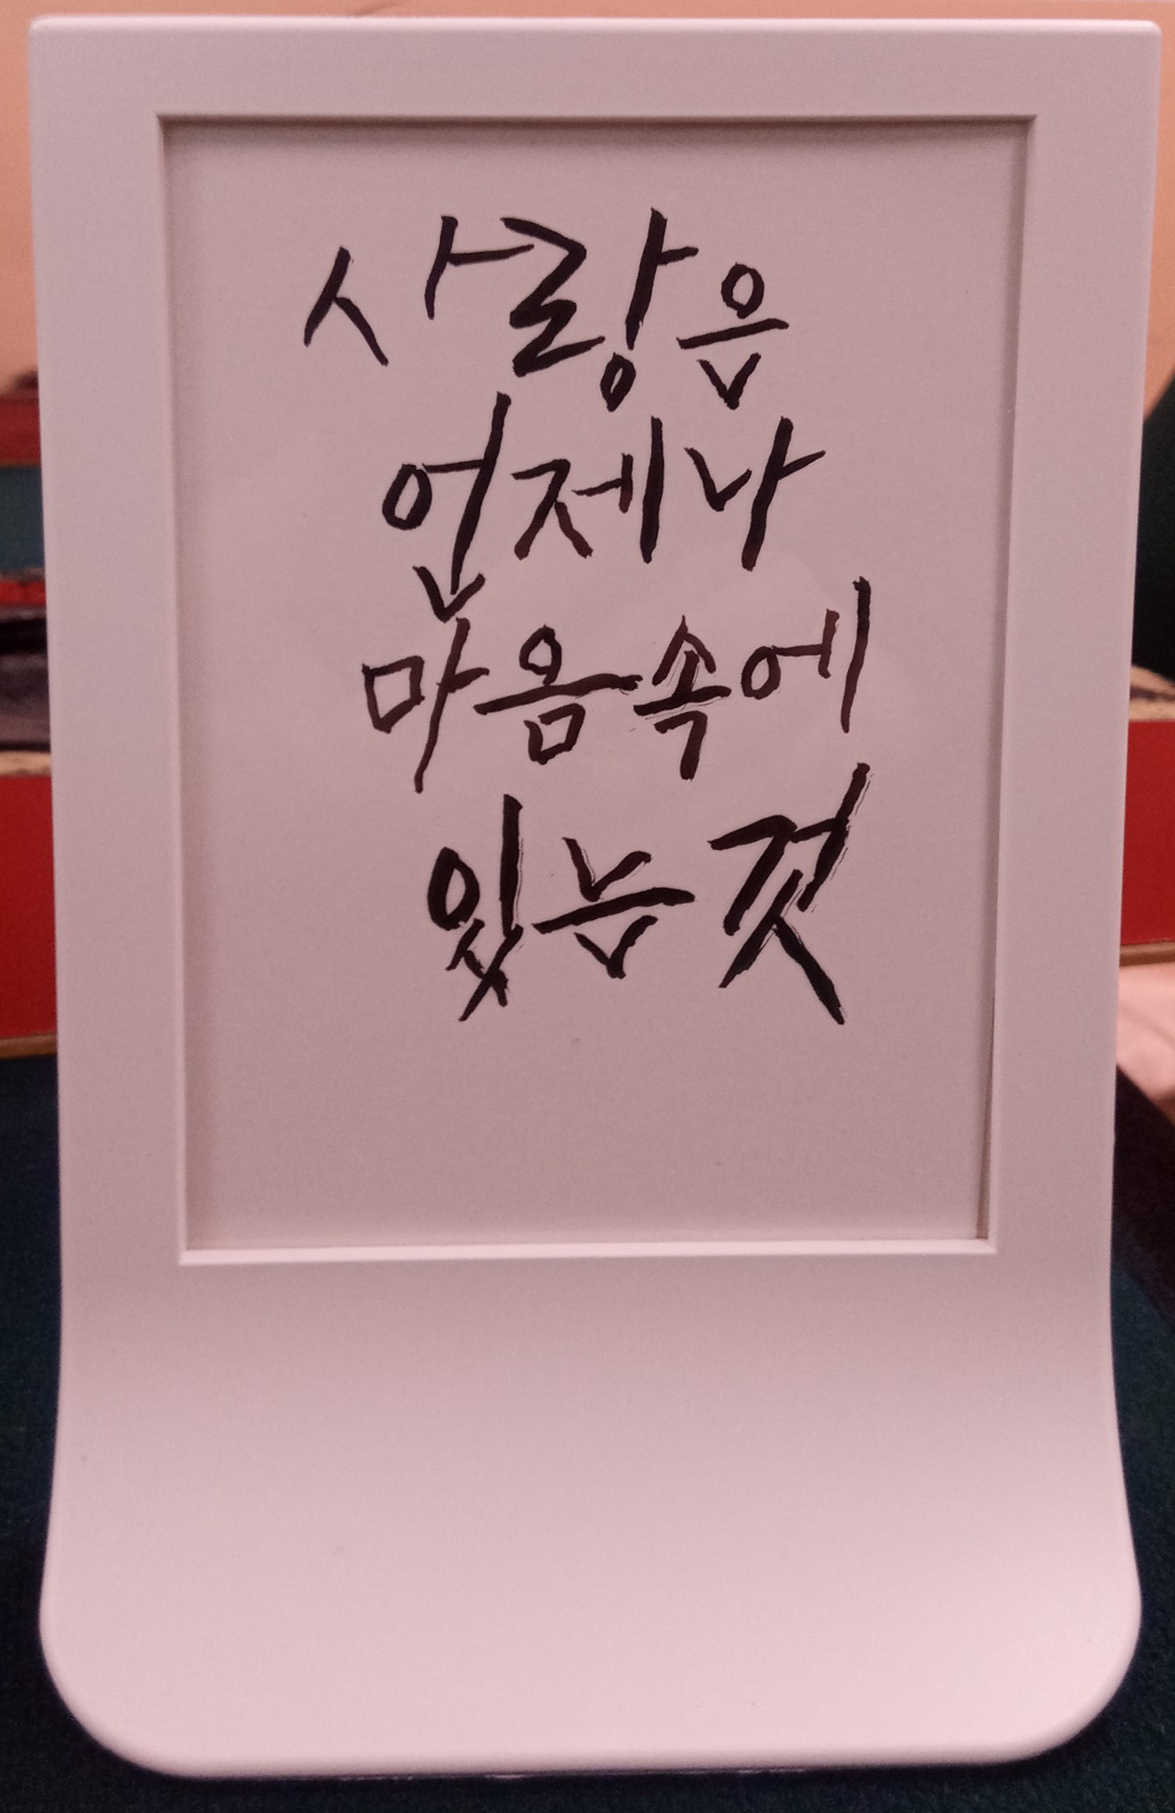 사랑은
언제나
마음속에
있는 것